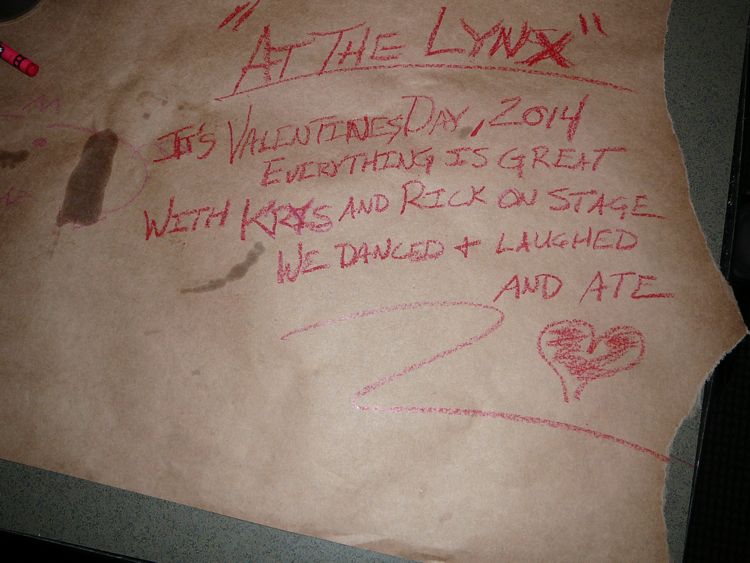 "AT THE LYNX"
IT'S VALENTINES DAY, 2014
EVERYTHING IS GREAT
WITH KRYS AND RICK ON STAGE
WE DANCED + LAUGHED
AND ATE